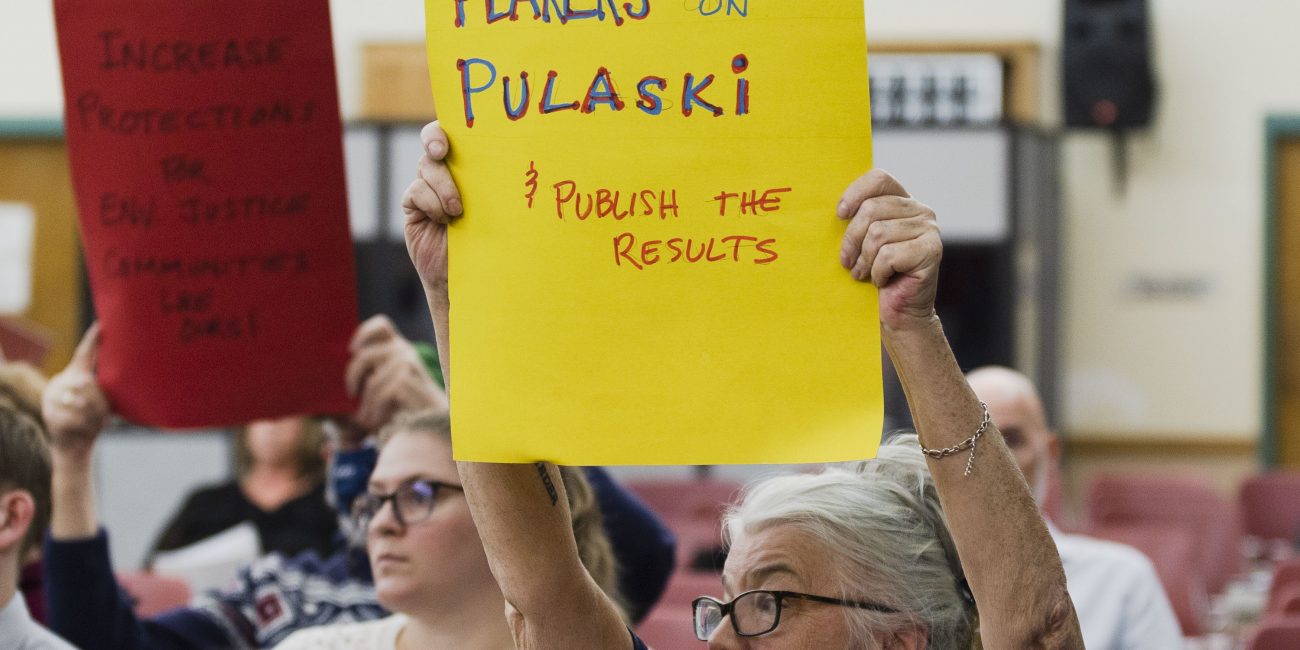 INCREASE
PROTECTIONS
FOR
ENV. JUSTICE
COMMUNITIES
LIKE
OURS!
PLANERS ON
PULASKI
& PUBLISH THE
RESULTS